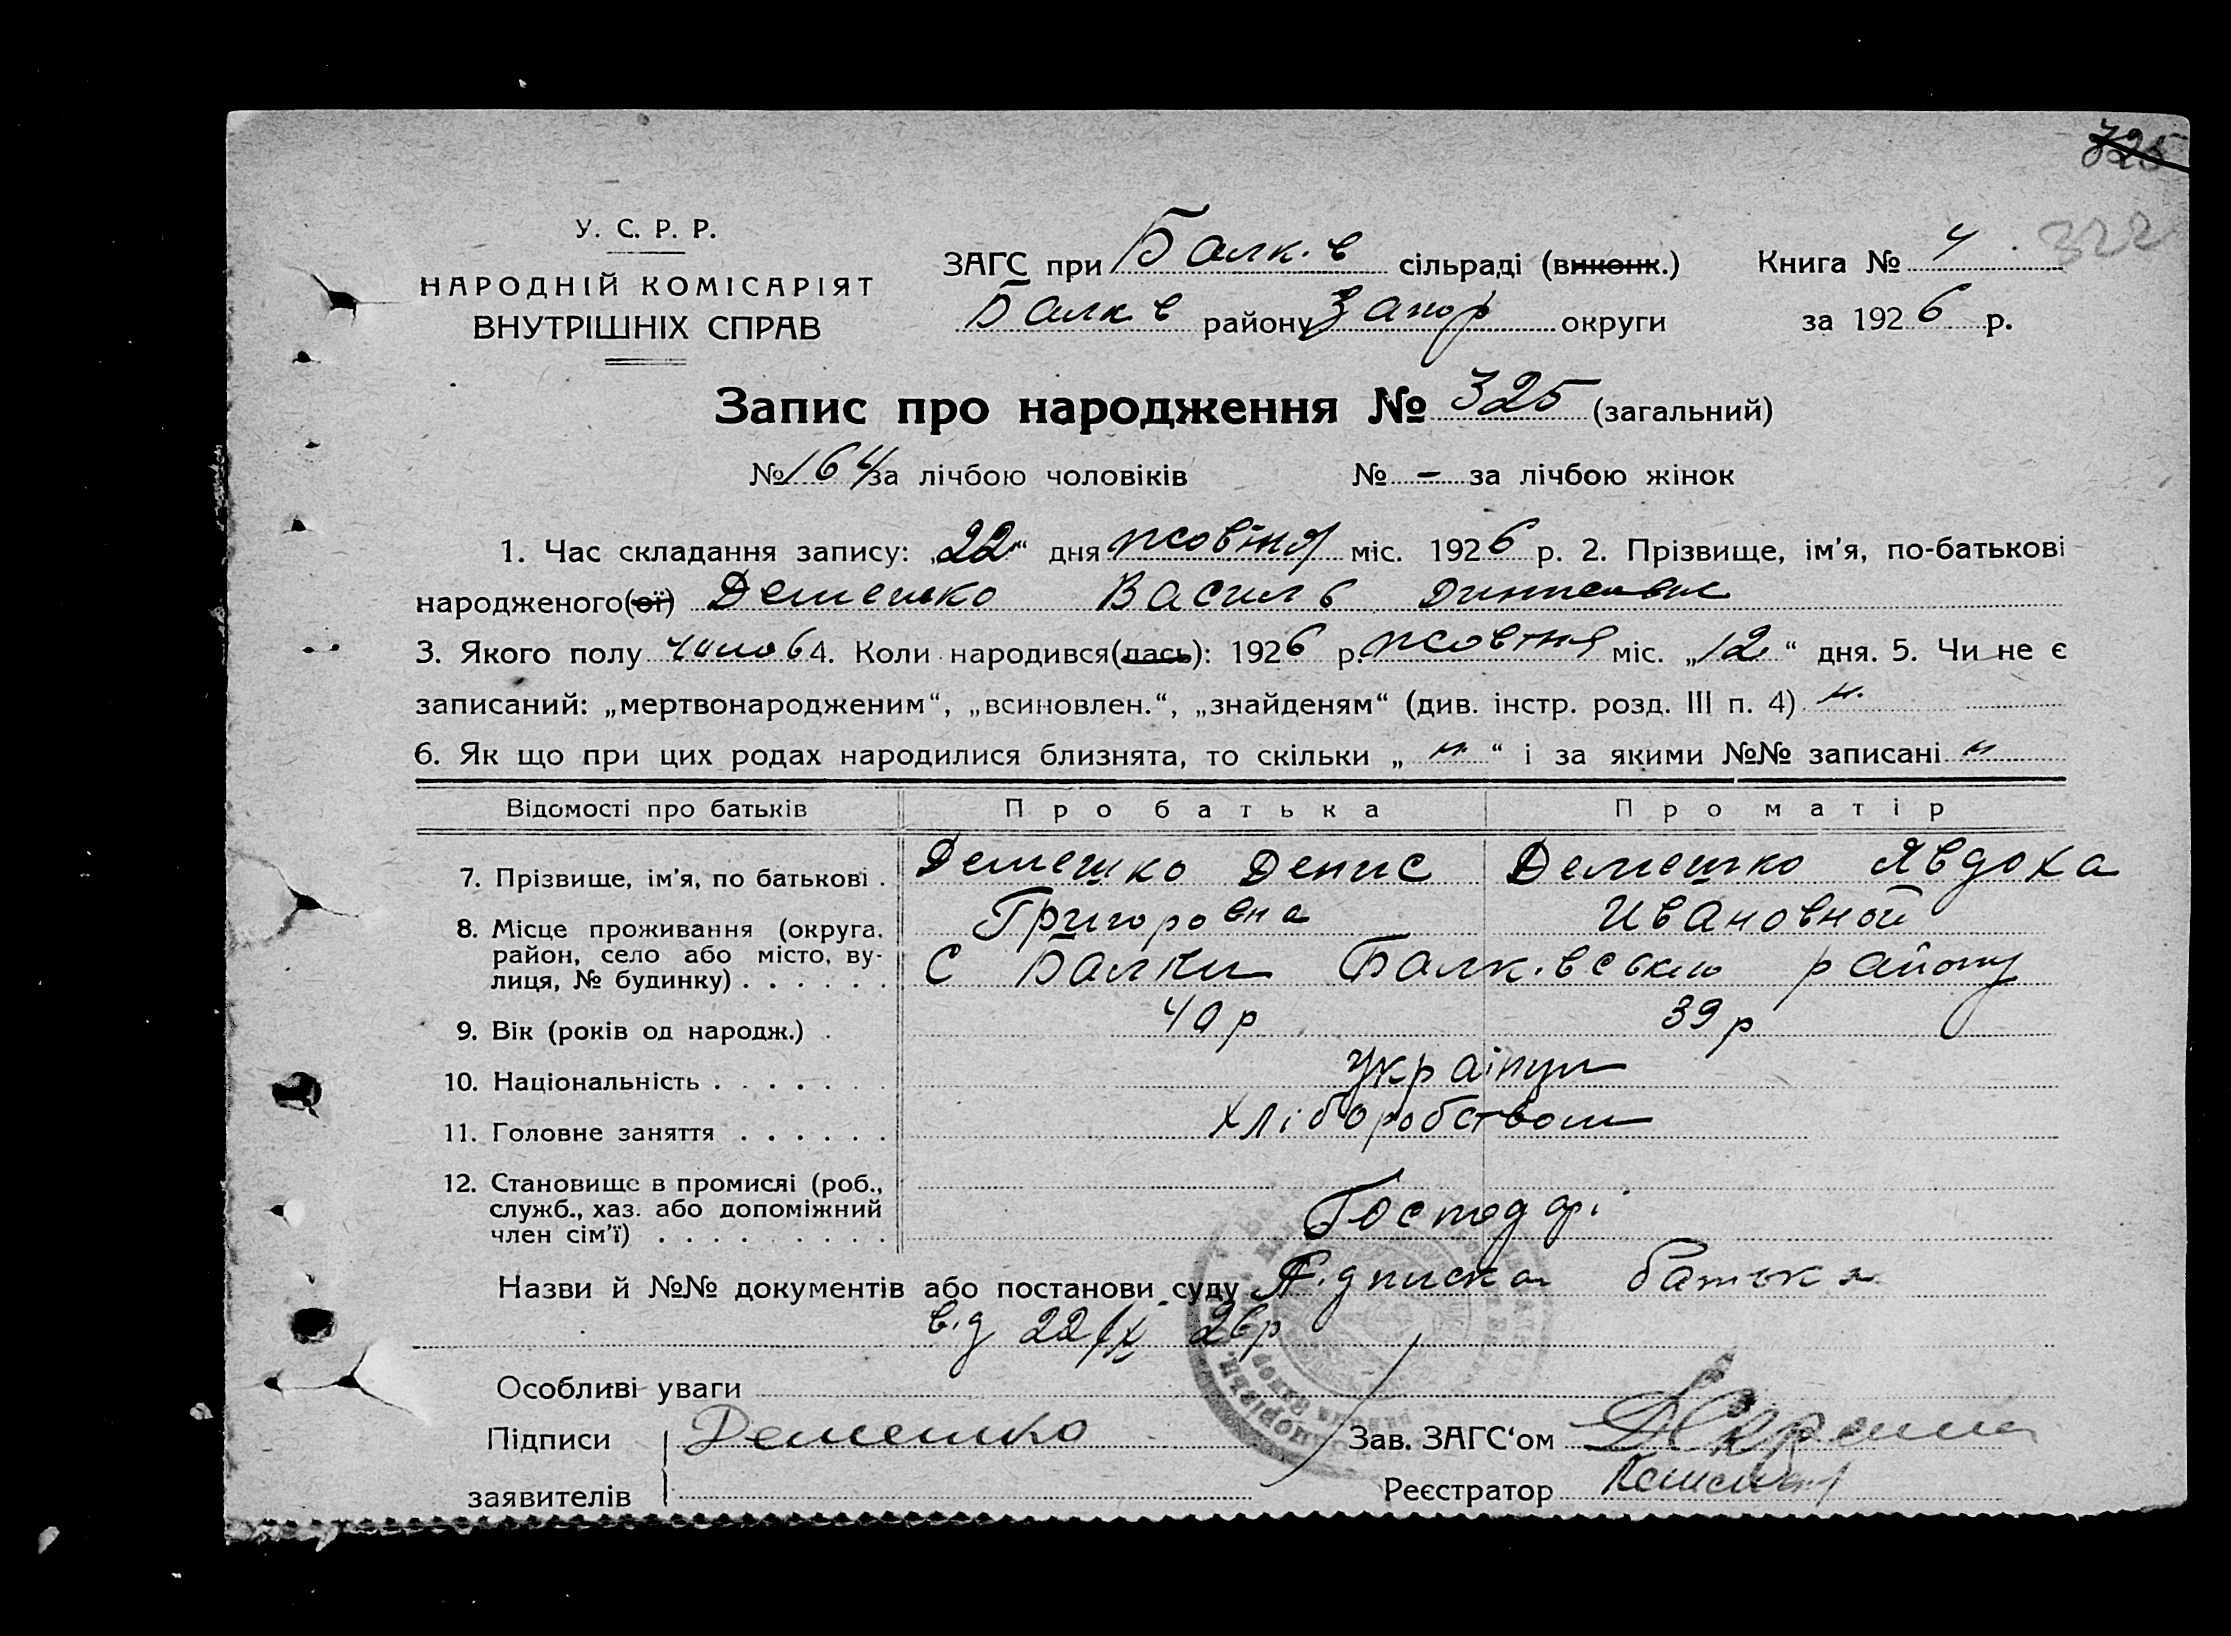 325
322
У. С. Р. Р.
НАРОДНІЙ КОМІСАРІЯТ
ВНУТРІШНІХ СПРАВ
ЗАГС при Балк.в сільраді (виконк.)
Балк в району Запор округи
Книга № 4
за 1926 р.
Запис про народження № 325 (загальний)
№ 164 за лічбою чоловіків № – за лічбою жінок
1. Час складання запису: „22“ дня жовтня міс. 1926 р. 2. Прізвище, ім'я, по-батькові
народженого(ої) Демешко Василь
3. Якого полу чолов 4. Коли народився(лась): 1926 р. жовтня міс. „12“ дня. 5. Чи не є
записаний: „мертвонародженим“, „всиновлен.“, „знайденям“ (див. інстр. розд. III п. 4) н.
6. Як що при цих родах народилися близнята, то скільки „ н. “ і за якими №№ записані н
Відомості про батьків Про батька Про матір
7. Прізвище, ім'я, по батькові . Демешко Денис Демешко Явдоха
Григоровна Ивановной
8. Місце проживання (округа, район, село або місто, вулиця, № будинку) . . . . . . С Балки Балк.вського району
9. Вік (років од народж.) . 40 р 39 р
10. Національність . . . . . . . Українци
11. Головне заняття . . . . . . Хліборобством
12. Становище в промислі (роб., служб., хаз. або допоміжний член сім'ї) . . . . . . . . . Господарі
Назви й №№ документів або постанови суду Підписка батька
від 22/X 26р
Особливі уваги
Підписи Демешко Зав. ЗАГС‘ом
заявителів Реєстратор